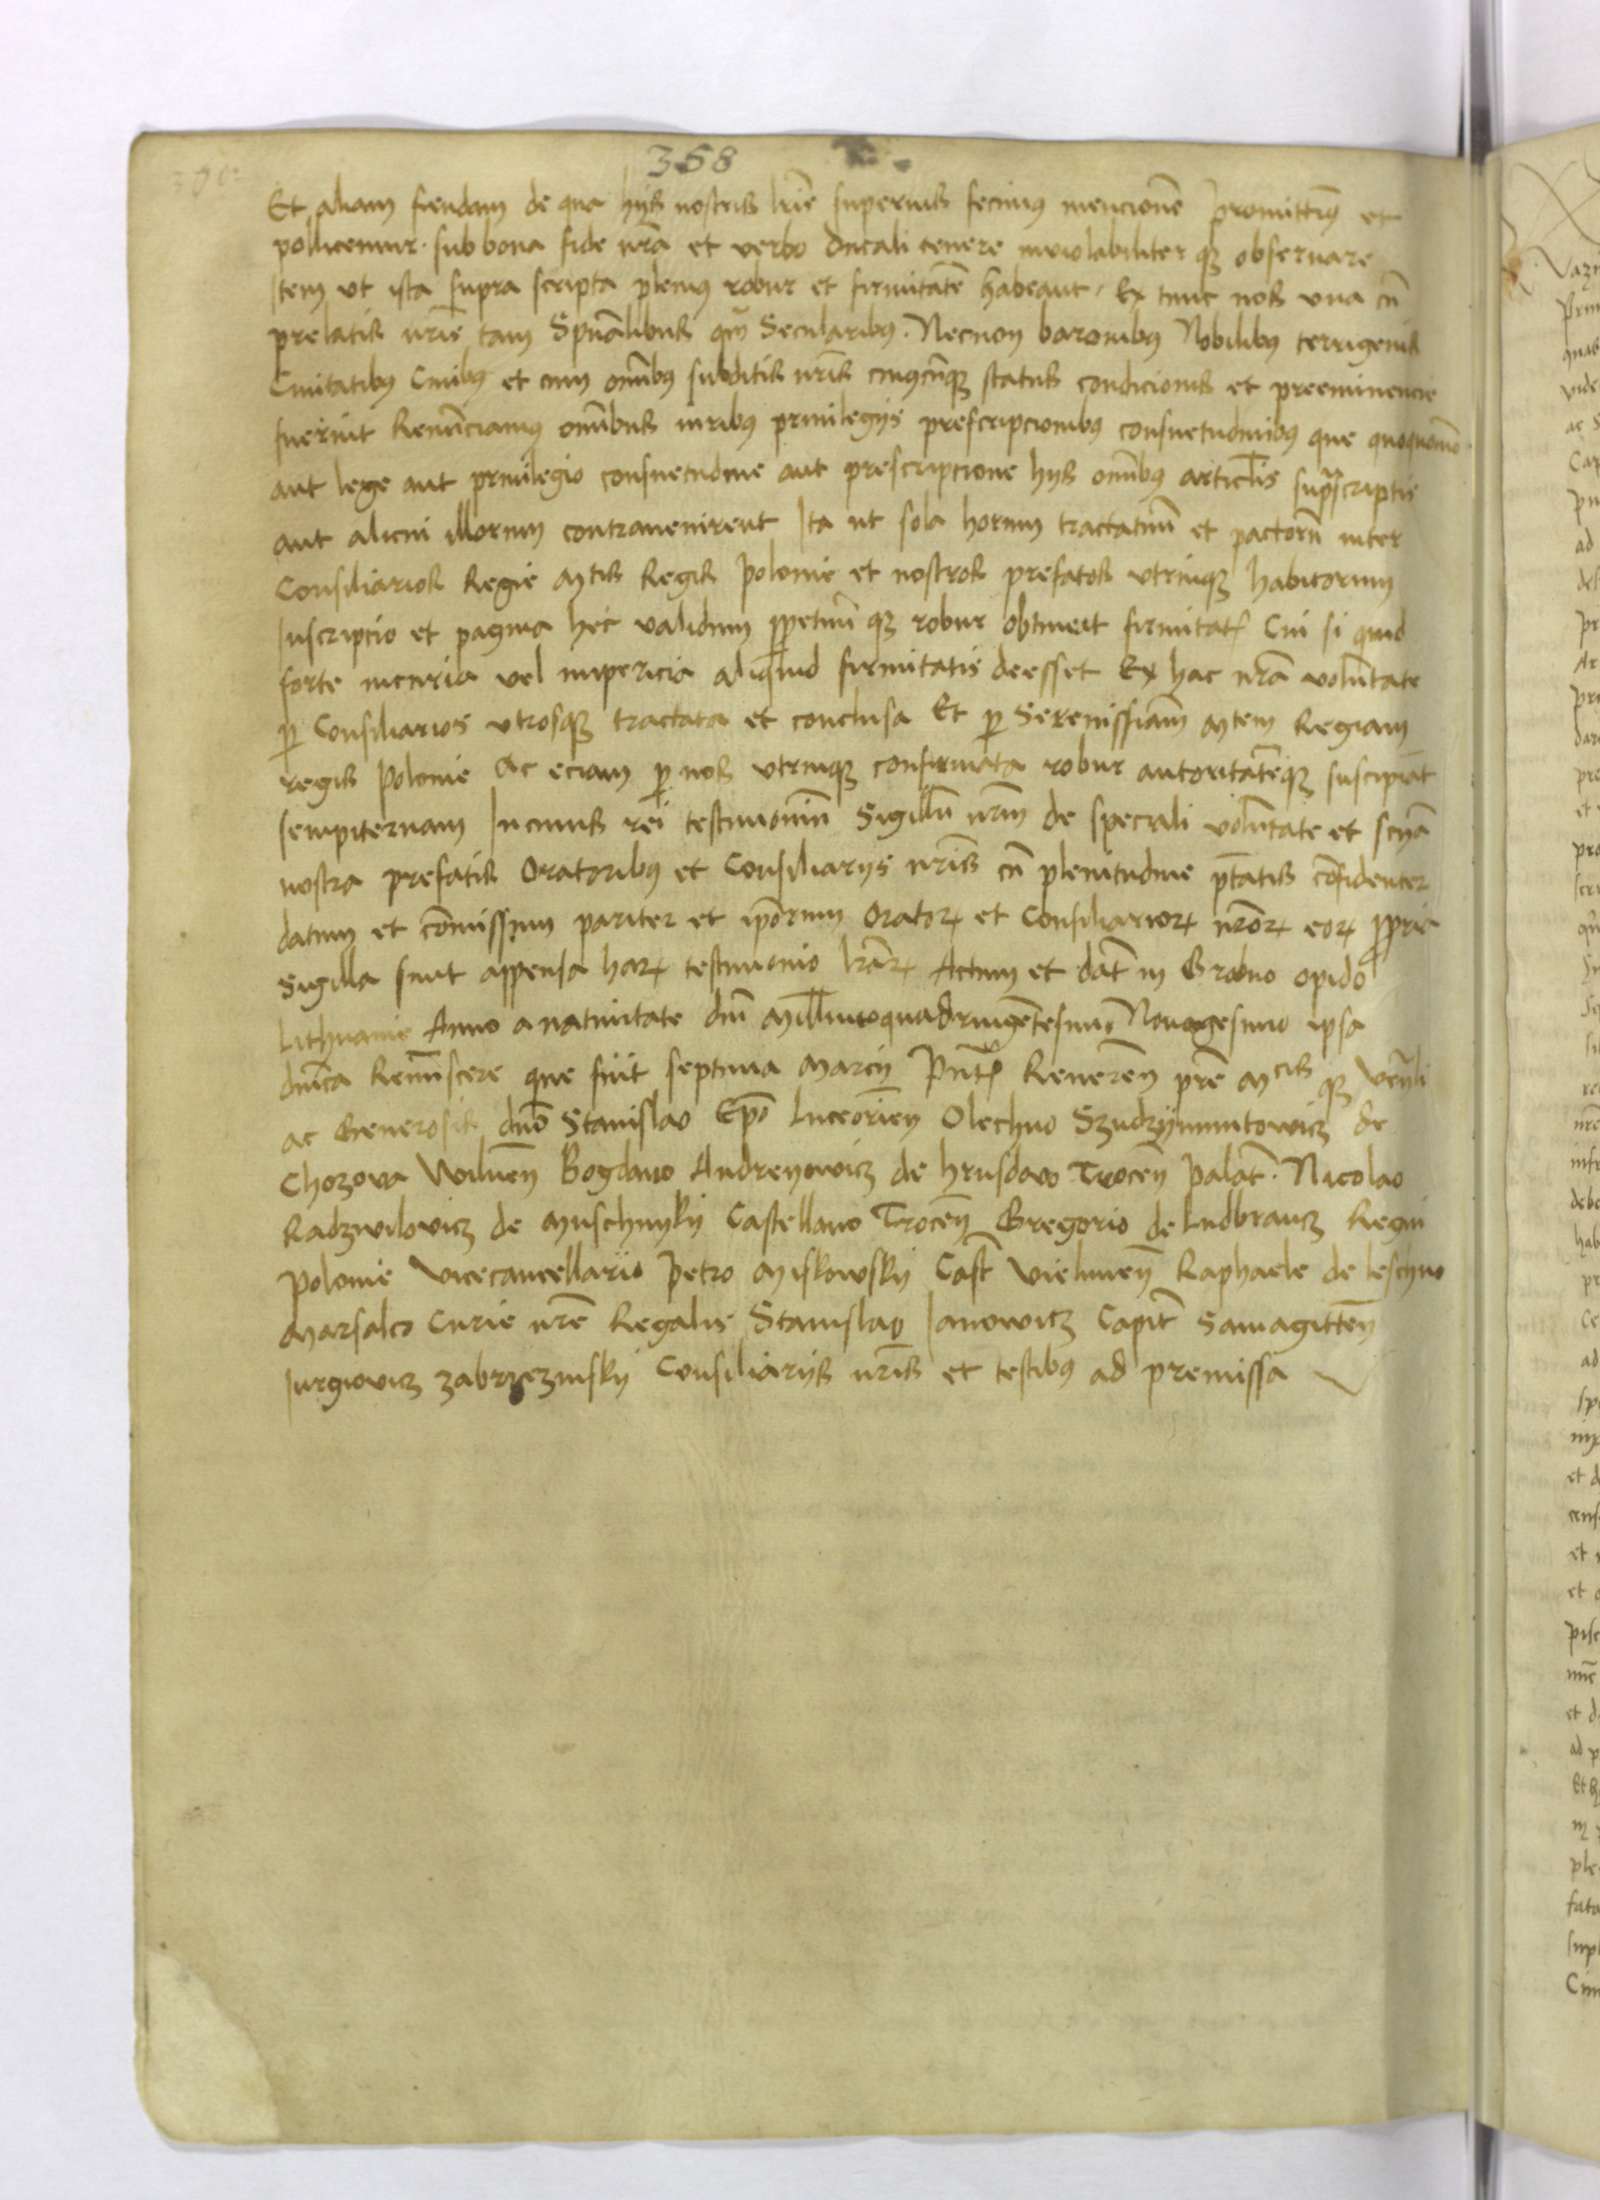 358
Et aliam fiendam de qua hijs nostris lris superius fecimus mencionē promittim⁹ et
pollicemur. sub bona fide nra et verbo ducali tenere inviolabiliter qꝫ observare
Item ut ista supra scripta plenius robur et firmitatē habeant. Ex tunc nos vna cū
prelatis nris tam Spūalibus qm̄ Secularibus. Necnon baronibus Nobilibus terrigenis
Civitatibus Civibus et cum omībus subditis nris cuiuscūqꝫ status condicionis et preeminencie
fuerint Renūnciamus omībus iuribus privilegijs prescripcionibus consuetudinibus que quoquomō
aut lege aut privilegio consuetudine aut prescripcione hijs omībus articlis suprascriptis
aut alicui illorum contravenirent Ita ut sola horum tractatuū et pactorū inter
Consiliarios Regie Mtis Regis Polonie et nostros prefatos utrinqꝫ habitorum
Inscripcio et pagina hec validum ꝑpetuū qꝫ robur obtineat firmitatꝭ Cui si quid
forte incuria vel impericia aliquid firmitatis deesset Ex hac nra volūtate
ꝑ Consiliarios utrosqꝫ tractata et conclusa Et ꝑ Serenissiam Mtem Regiam
regis Polonie Ac eciam ꝑ nos utrinqꝫ confirmata robur autoritatēqꝫ suscipiāt
sempiternam In cuius rei testimoniū Sigillū nrm de speciali volūtate et scīa
nostra prefatis Oratoribus et Consiliarijs nris cū plenitudine ptātis cōfidenter
datum et cōmissum pariter et ipōrum Oratoꝝ et Consiliarioꝝ nroꝝ eoꝝ ꝓpria
Sigilla sunt appensa haꝝ testimonio lrāꝝ Actum et dat in Grodno opido
Lithuanie Anno a nativitate dni Millimoquadringētesimo Nonagesimo ipsa
dnīca Reminīscere que fuit septima Marcij Pntꝭ Reverēn prē Mcis qꝫ
ac Generosis dno Stanislao Epo Luceoriēn Olechno Szudzijmuntowicz de
Chozova Wilnēn Bogdano Andreijowicz de hrusdowo Trocēn Palat. Nicolao
Radzivilovicz de Muschnyky Castellano Trocēn Gregorio de Ludbrancz Regni
Polonie Vicecancellario Petro Miskowskij Cast Vielunēn Raphaele de Leschno
Marsalco Curie nre Regalis Stanislao Ianowicz Capit Samagittēn
Iurgiovicz Zabrzezinskij Consiliarijs nris et testibus ad premissa